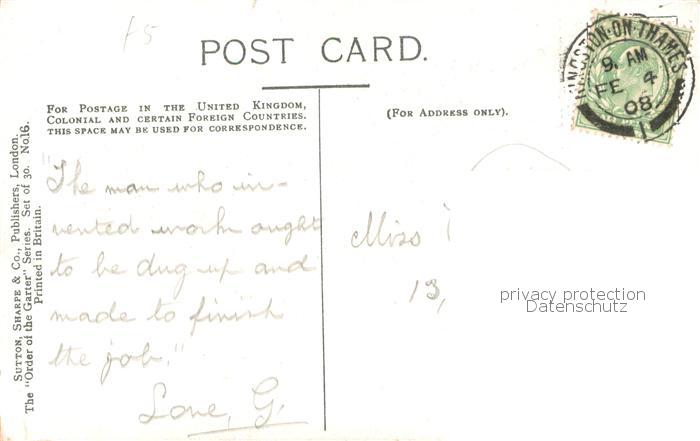 £5
POST CARD.
KINGSTON·ON·THAMES
9. AM
FE 4
08
FOR POSTAGE IN THE UNITED KINGDOM,
COLONIAL AND CERTAIN FOREIGN COUNTRIES.
THIS SPACE MAY BE USED FOR CORRESPONDENCE.
(FOR ADDRESS ONLY).
SUTTON, SHARPE & CO., Publishers, London.
The "Order of the Garter" Series. Set of 30. No.16.
Printed in Britain.
"The man who in-
vented work ought
to be dug up and
made to finish
the job."
Love, G.
Miss
13,
privacy protection
Datenschutz